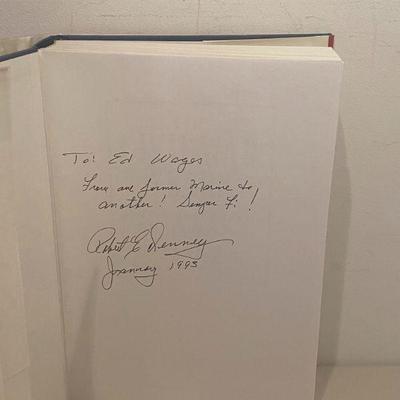 To: Ed Wages
From one former Marine to
another! Semper Fi!
Robert E
January 1993